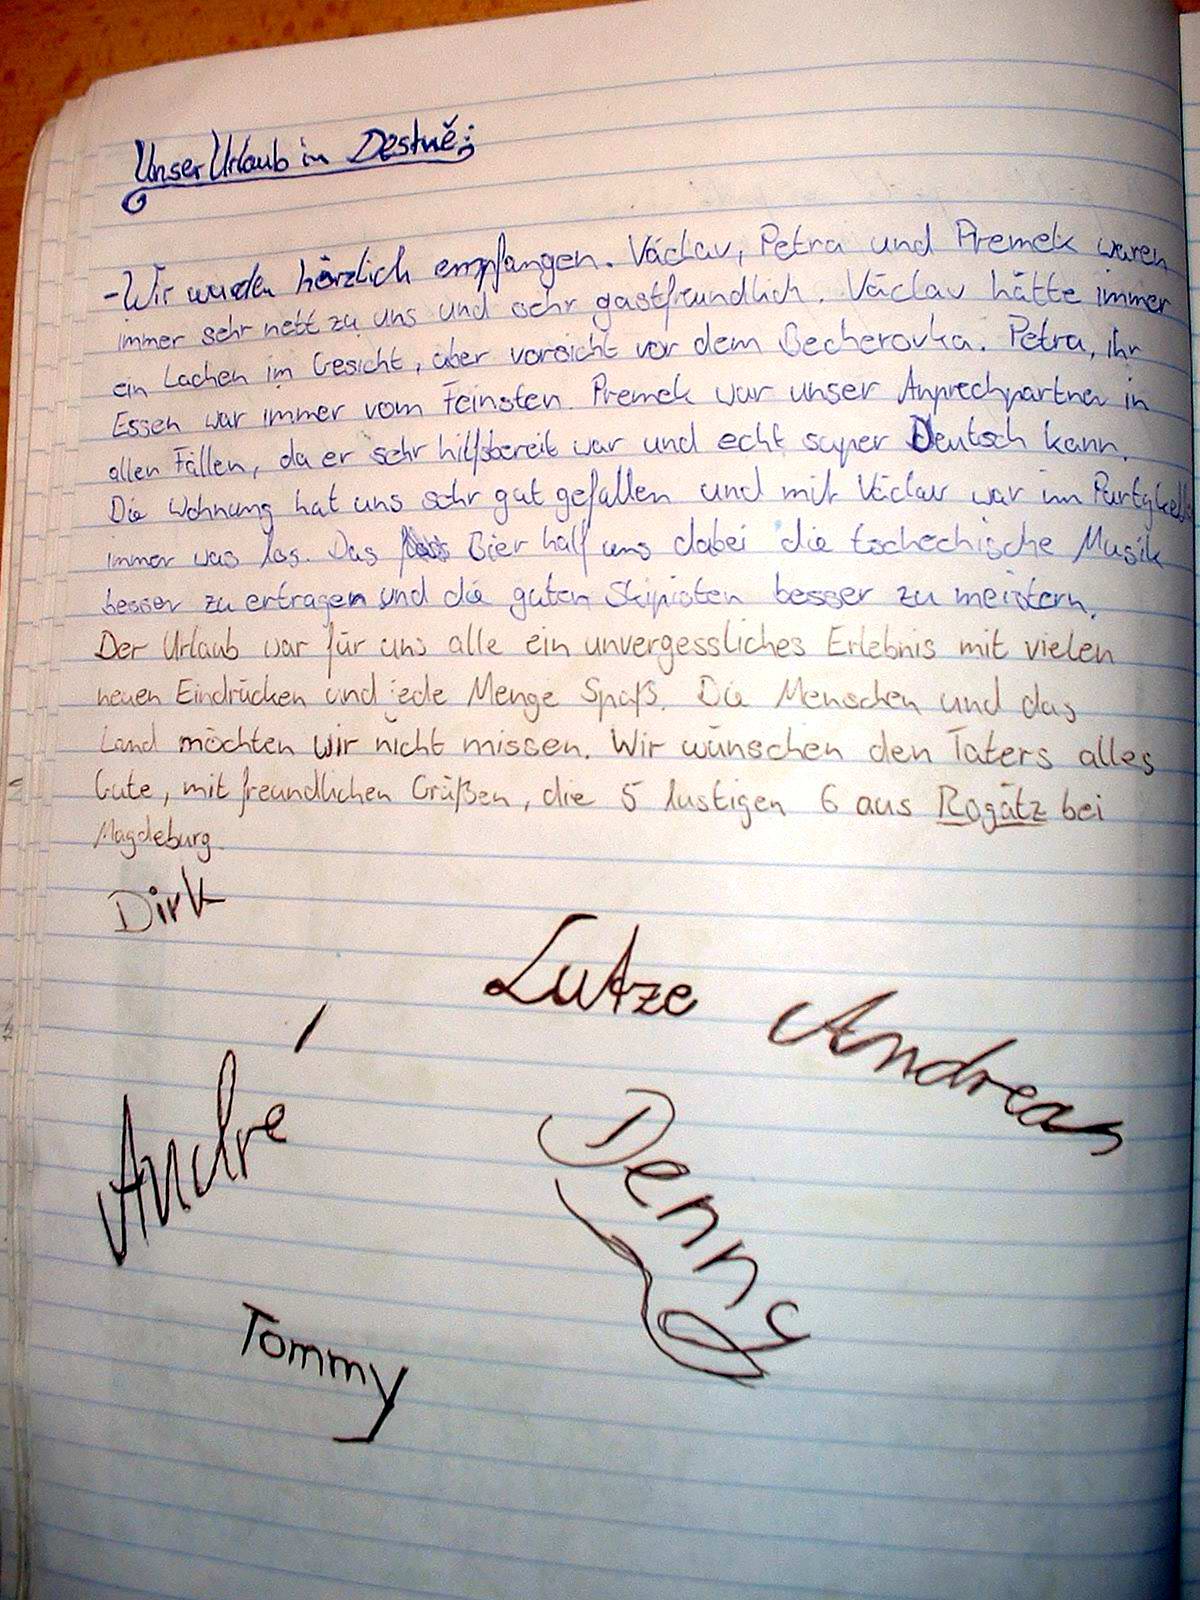 Unser Urlaub in Destně:
-Wir wurden herzlich empfangen. Václav, Petra und Premek waren
immer sehr nett zu uns und sehr gastfreundlich. Václav hätte immer
ein Lachen im Gesicht, aber vorsicht vor dem Becherovka. Petra, ihr
Essen war immer vom Feinsten. Premek war unser Anprechpartner in
allen Fällen, da er sehr hilfsbereit war und echt super Deutsch kann.
Die Wohnung hat uns sehr gut gefallen und mit Václav war im Partykeller
immer was los. Das Bier half uns dabei die tschechische Musik
besser zu ertragen und die guten Skipisten besser zu meistern.
Der Urlaub war für uns alle ein unvergessliches Erlebnis mit vielen
neuen Eindrücken und jede Menge Spaß. Die Menschen und das
Land möchten wir nicht missen. Wir wünschen den Taters alles
Gute, mit freundlichen Grüßen, die 5 lustigen 6 aus Rogätz bei
Magdeburg.
Dirk
Lutze
Andreas
André
Denny
Tommy